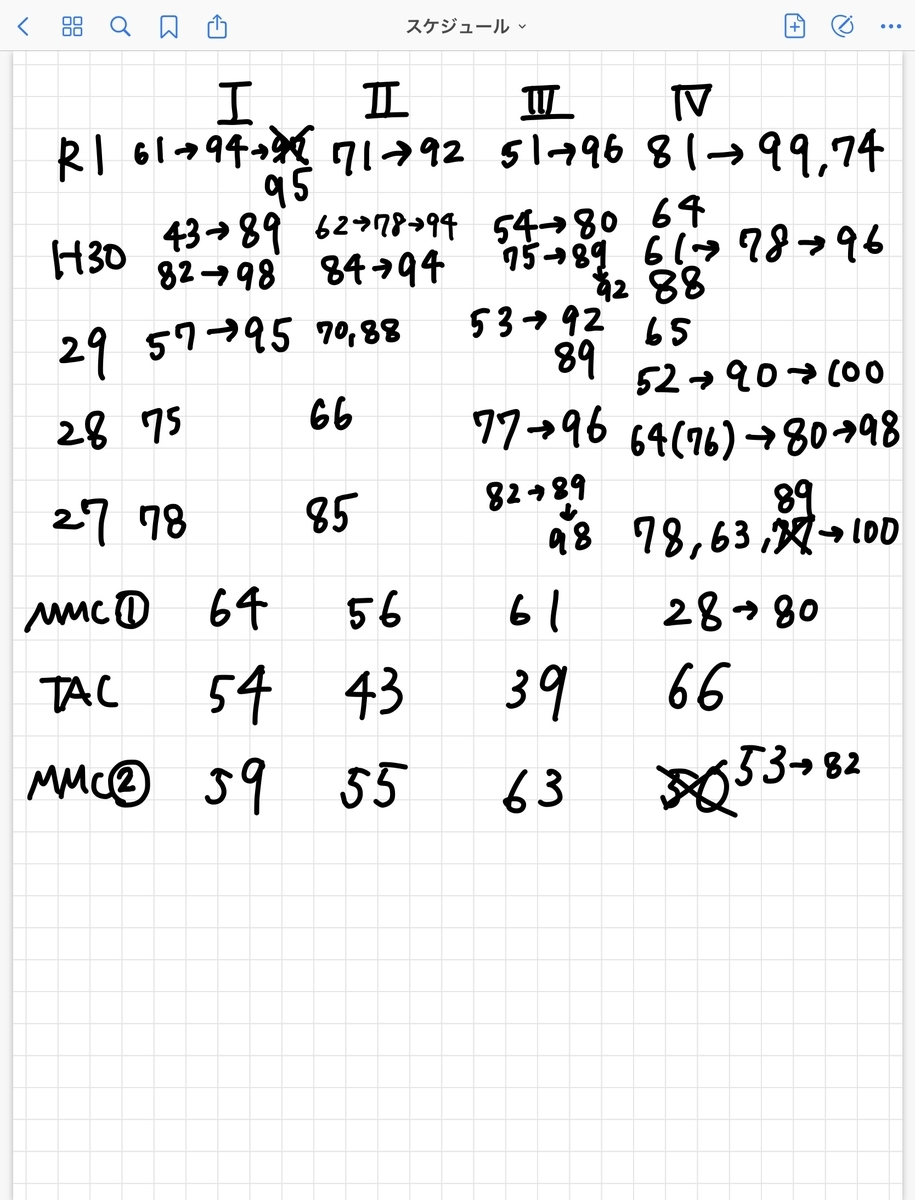 スケジュール
I II III IV
R1 61→94→ 95 71→92 51→96 81→99,74
H30 43→89 82→98 62→78→94 84→94 54→80 75→89→92 64 61→78→96 88
29 57→95 70,88 53→92 89 65 52→90→100
28 75 66 77→96 64(76)→80→98
27 78 85 82→89→98 78,63,89→100
MMC① 64 56 61 28→80
TAC 54 43 39 66
MMC② 59 55 63 50 53→82